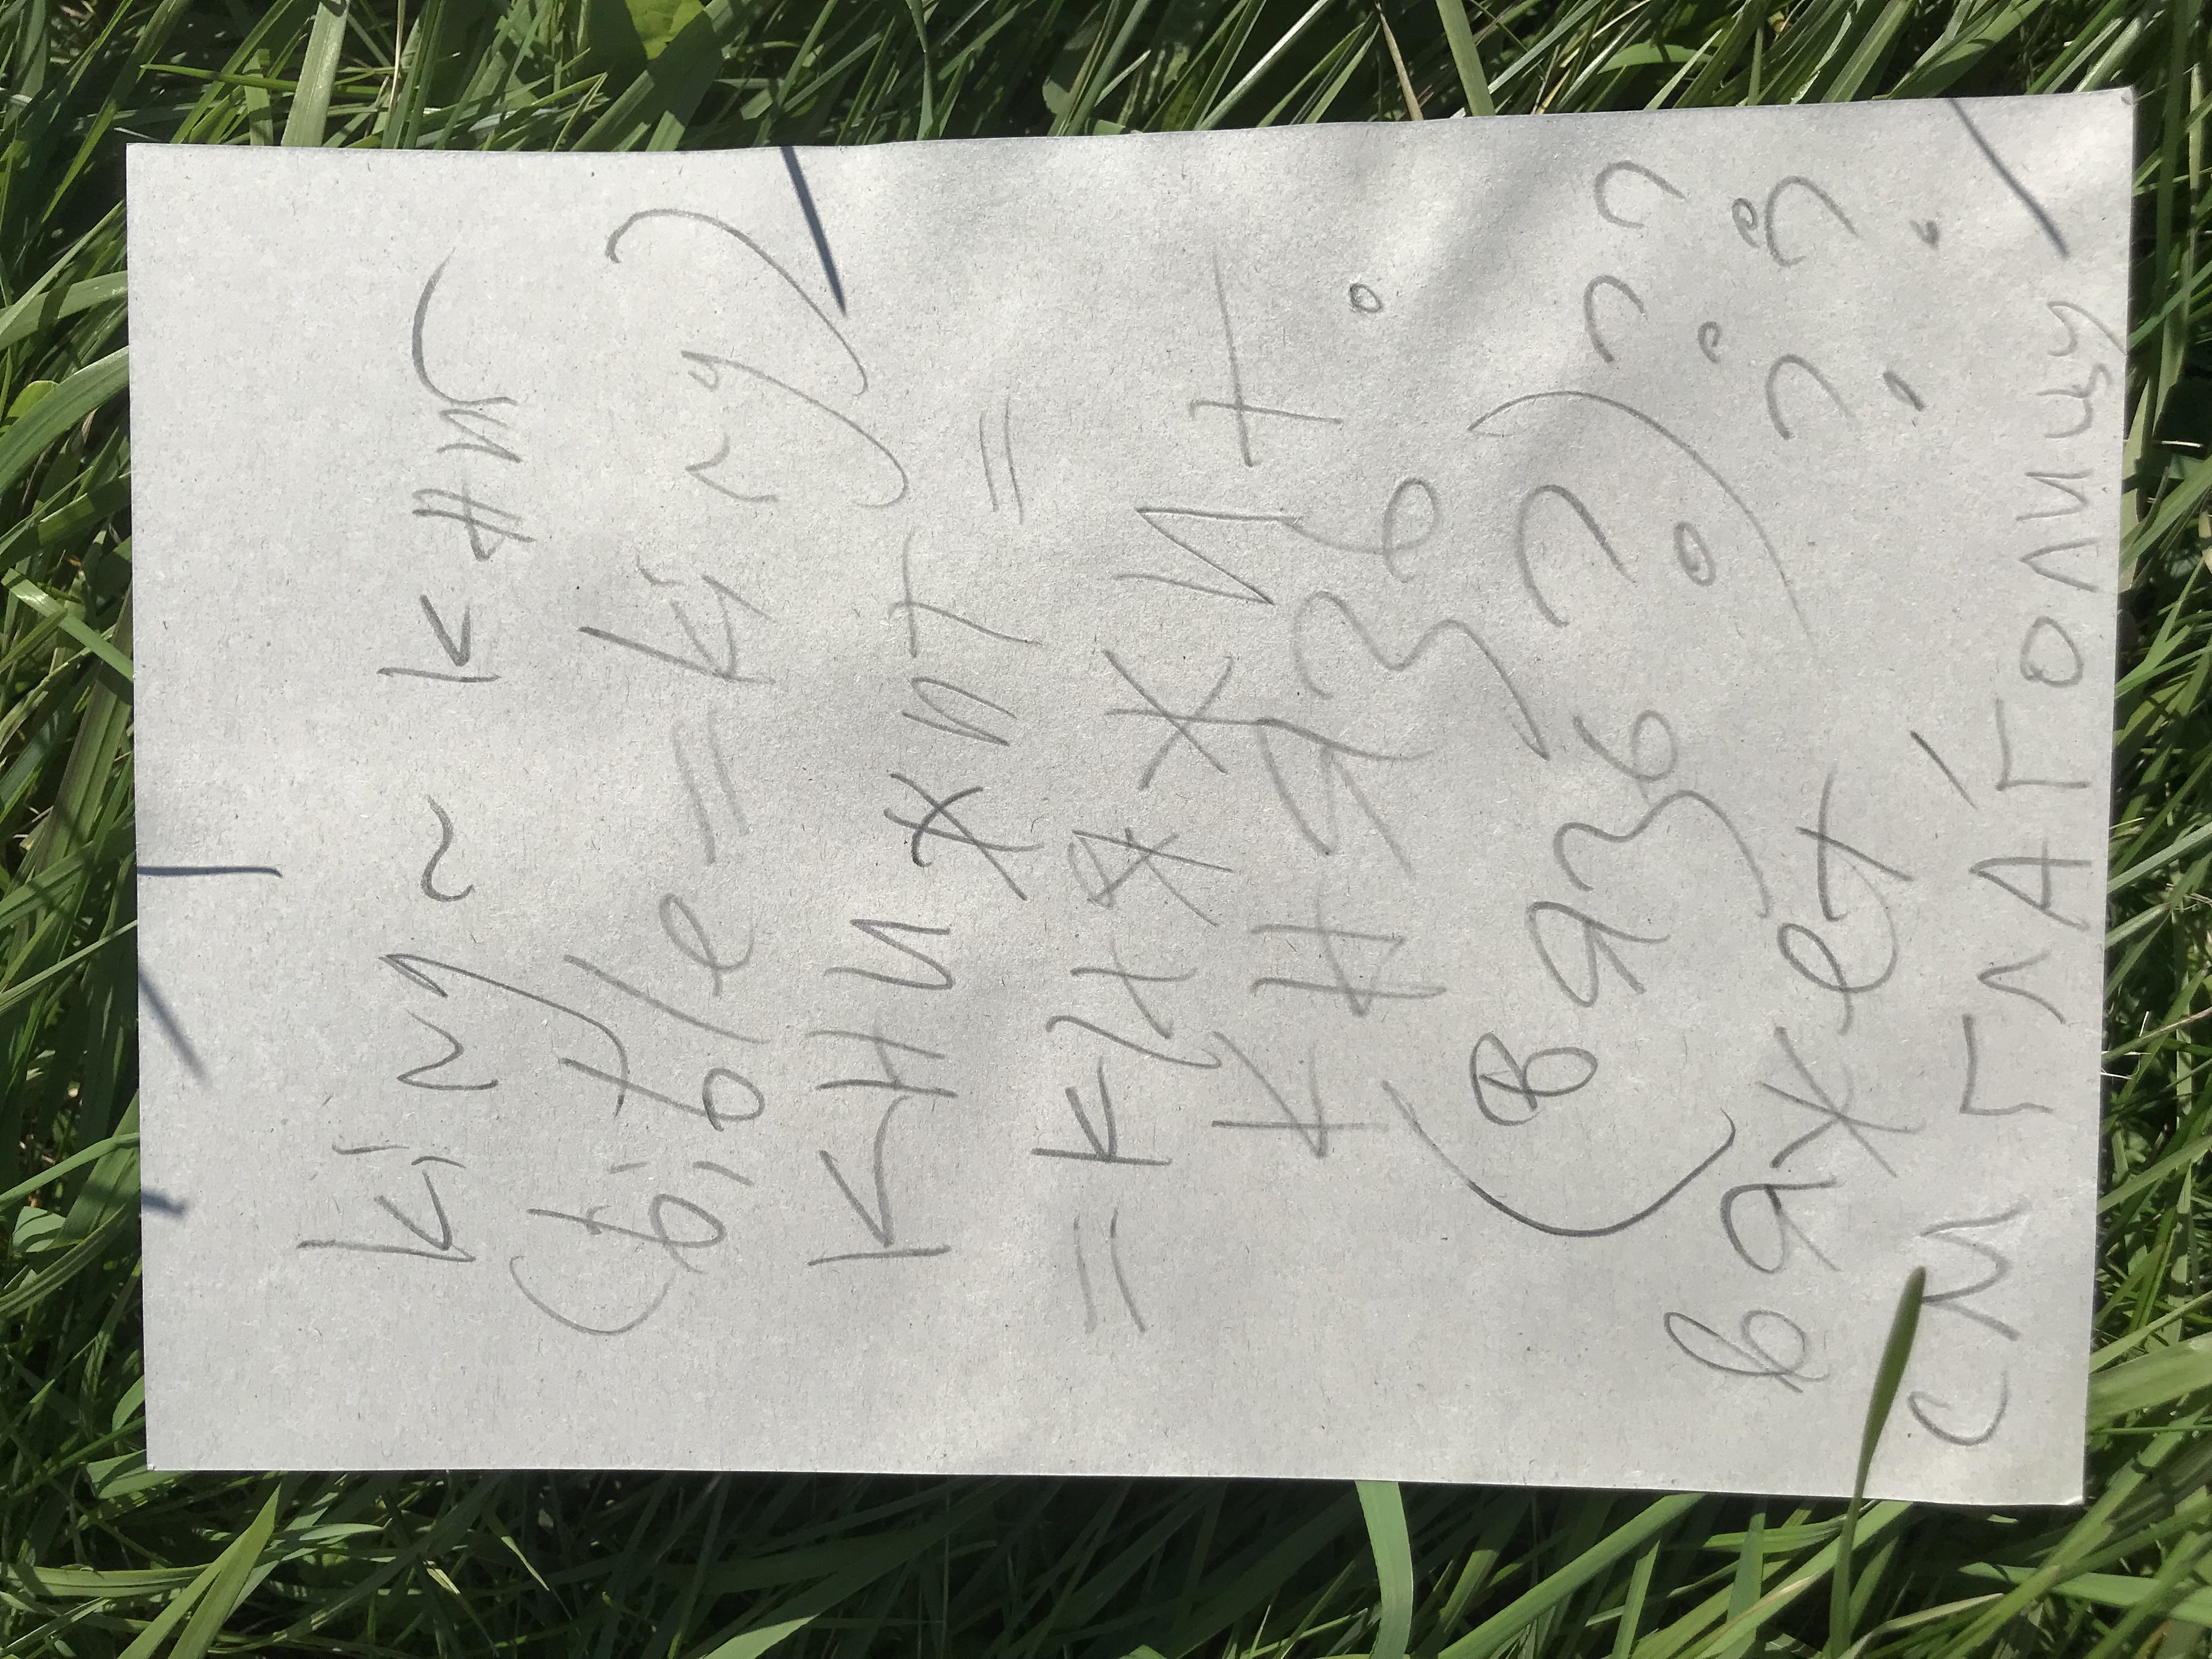 king ~ книг
(bible = king)
книжит =
= княжит
князь.
(вязь?) ??
вяжет ??
см глаголицу